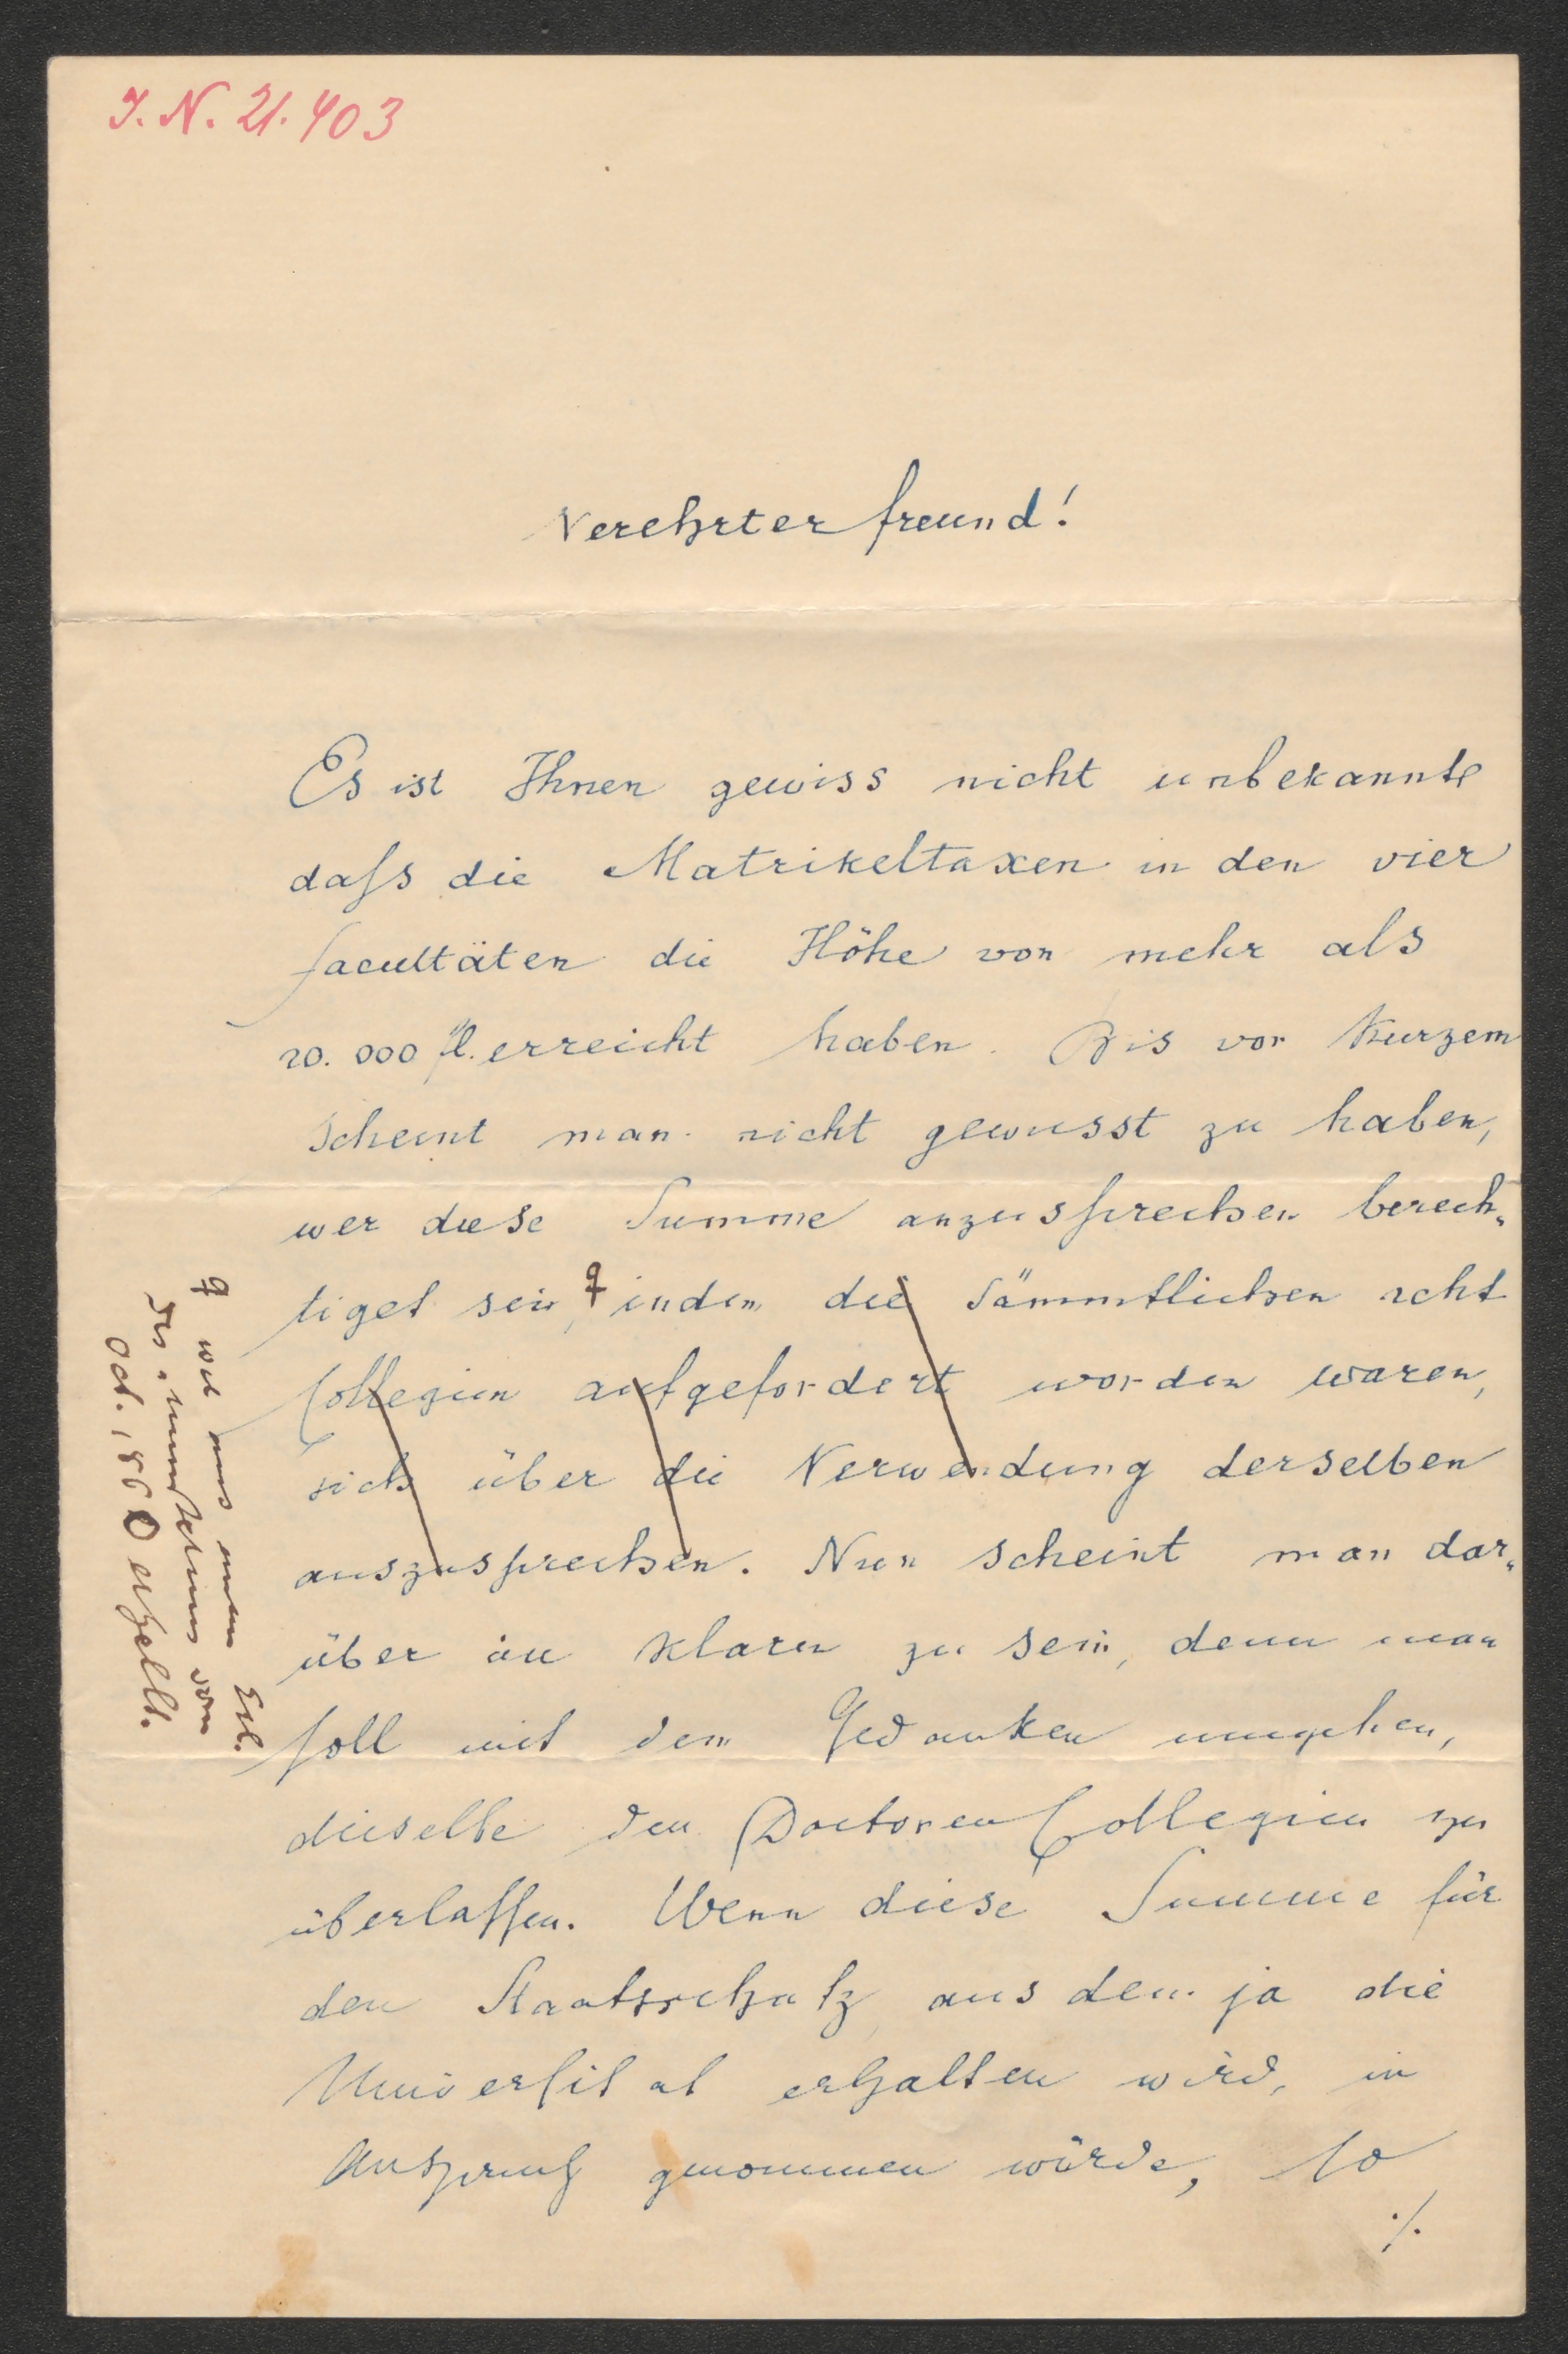 J. N. 21.403
Verehrter freund!
Es ist Ihnen gewiss nicht unbekannt
daſs die Matrikeltaxen in den vier
facultäten die Höhe von mehr als
20.000 fl. erreicht haben. Bis vor Kurzem
scheint man nicht gewusst zu haben,
wer diese Summe anzusprechen berech„
tiget sei, indem die sämmtlichen acht
Collegien aufgefordert worden waren,
sich über die Verwendung derselben
auszusprechen. Nun scheint man dar„
über im Klaren zu sein, denn man
soll mit dem Gedanken umgehen,
dieselbe den Doctoren Collegien zu
überlaſſen. Wenn diese Summe für
den Staatsschatz, aus dem ja die
Universität erhalten wird, in
Anspruch genommen würde, so
./.
wie aus einem Erl.
des vom
Oct. 1860 erhellt.